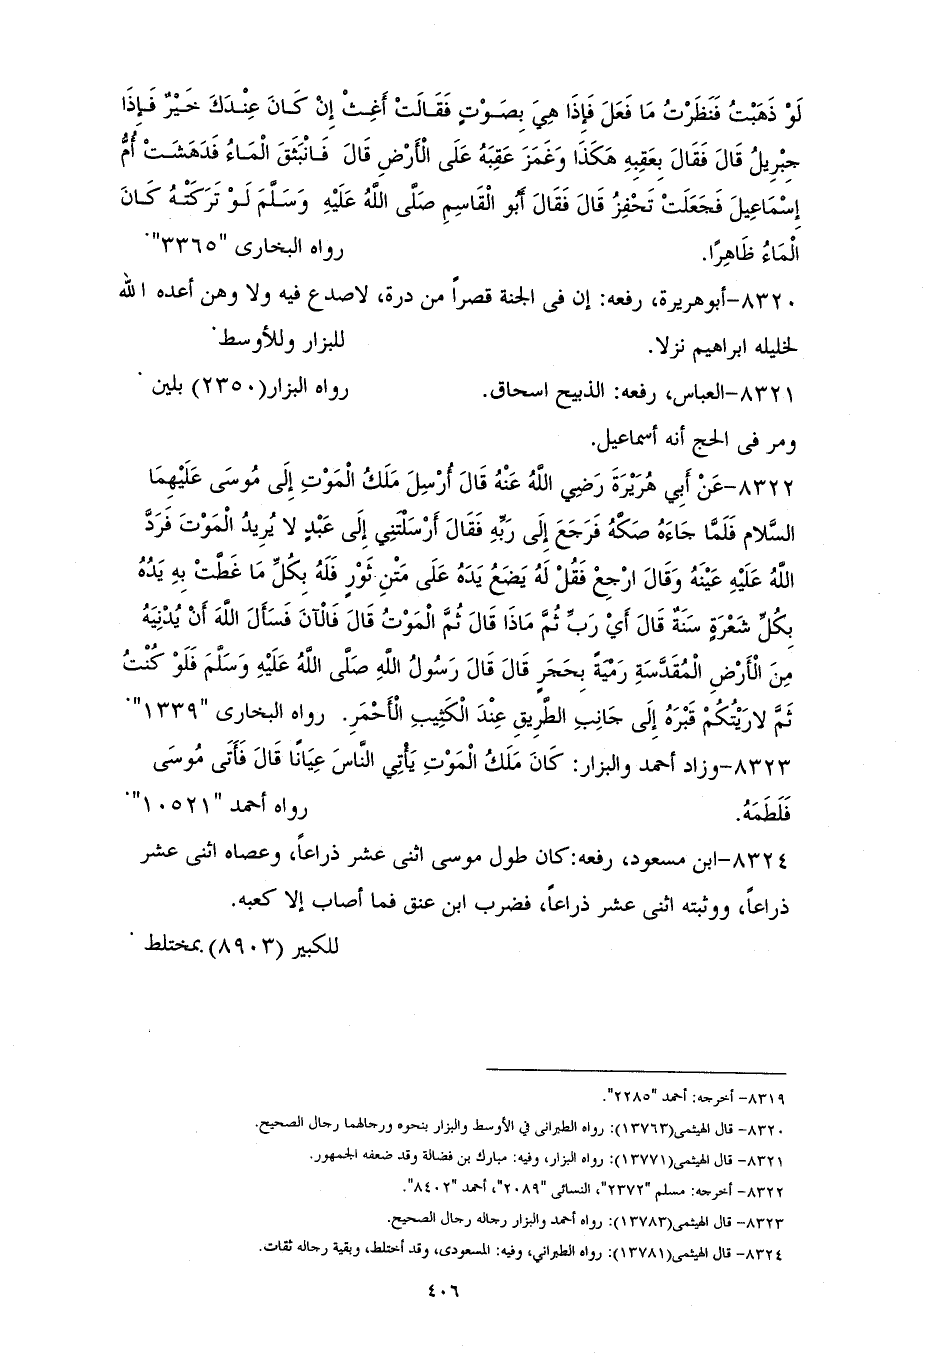 لَوْ ذَهَبْتُ فَنَظَرْتُ مَا فَعَلَ فَإِذَا هِيَ بِصَوْتٍ فَقَالَتْ أَغِثْ إِنْ كَانَ عِنْدَكَ خَيْرٌ فَإِذَا
جِبْرِيلُ قَالَ فَقَالَ بِعَقِبِهِ هَكَذَا وَغَمَزَ عَقِبَهُ عَلَى الْأَرْضِ قَالَ فَانْبَثَقَ الْمَاءُ فَدَهَشَتْ أُمُّ
إِسْمَاعِيلَ فَجَعَلَتْ تَحْفِزُ قَالَ فَقَالَ أَبُو الْقَاسِمِ صَلَّى اللَّهُ عَلَيْهِ وَسَلَّمَ لَوْ تَرَكَتْهُ كَانَ
الْمَاءُ ظَاهِرًا. رواه البخارى "٣٣٦٥".
٨٣٢٠–أبوهريرة، رفعه: إن فى الجنة قصراً من درة، لاصدع فيه ولا وهن أعده الله
لخليله ابراهيم نزلا. للبزار وللأوسط.
٨٣٢١–العباس، رفعه: الذبيح اسحاق. رواه البزار(٢٣٥٠) بلين.
ومر فى الحج أنه أسماعيل.
٨٣٢٢–عَنْ أَبِي هُرَيْرَةَ رَضِي اللَّهُ عَنْهُ قَالَ أُرْسِلَ مَلَكُ الْمَوْتِ إِلَى مُوسَى عَلَيْهِمَا
السَّلَام فَلَمَّا جَاءَهُ صَكَّهُ فَرَجَعَ إِلَى رَبِّهِ فَقَالَ أَرْسَلْتَنِي إِلَى عَبْدٍ لَا يُرِيدُ الْمَوْتَ فَرَدَّ
اللَّهُ عَلَيْهِ عَيْنَهُ وَقَالَ ارْجِعْ فَقُلْ لَهُ يَضَعُ يَدَهُ عَلَى مَتْنِ ثَوْرٍ فَلَهُ بِكُلِّ مَا غَطَّتْ بِهِ يَدُهُ
بِكُلِّ شَعْرَةٍ سَنَةٌ قَالَ أَيْ رَبِّ ثُمَّ مَاذَا قَالَ ثُمَّ الْمَوْتُ قَالَ فَالْآنَ فَسَأَلَ اللَّهَ أَنْ يُدْنِيَهُ
مِنَ الْأَرْضِ الْمُقَدَّسَةِ رَمْيَةً بِحَجَرٍ قَالَ قَالَ رَسُولُ اللَّهِ صَلَّى اللَّهُ عَلَيْهِ وَسَلَّمَ فَلَوْ كُنْتُ
ثَمَّ لَارَيْتُكُمْ قَبْرَهُ إِلَى جَانِبِ الطَّرِيقِ عِنْدَ الْكَثِيبِ الْأَحْمَرِ. رواه البخارى "١٣٣٩".
٨٣٢٣–وزاد أحمد والبزار: كَانَ مَلَكُ الْمَوْتِ يَأْتِي النَّاسَ عِيَانًا قَالَ فَأَتَى مُوسَى
فَلَطَمَهُ. رواه أحمد "١٠٥٢١".
٨٣٢٤–ابن مسعود، رفعه:كان طول موسى اثنى عشر ذراعاً، وعصاه اثنى عشر
ذراعاً، ووثبته اثنى عشر ذراعاً، فضرب ابن عنق فما أصاب إلا كعبه.
للكبير (٨٩٠٣).بمختلط.
٨٣١٩– أخرجه: أحمد "٢٢٨٥".
٨٣٢٠– قال الهيثمى(١٣٧٦٣): رواه الطبرانى في الأوسط والبزار بنحوه ورجالهما رجال الصحيح.
٨٣٢١– قال الهيثمى(١٣٧٧١): رواه البزار، وفيه: مبارك بن فضالة وقد ضعفه الجمهور.
٨٣٢٢– أخرجه: مسلم "٢٣٧٢"، النسائى "٢٠٨٩"، أحمد "٨٤٠٢".
٨٣٢٣– قال الهيثمى(١٣٧٨٣): رواه أحمد والبزار رجاله رجال الصحيح.
٨٣٢٤– قال الهيثمى(١٣٧٨١): رواه الطبراني، وفيه: المسعودى، وقد أختلط، وبقية رجاله ثقات.
٤٠٦